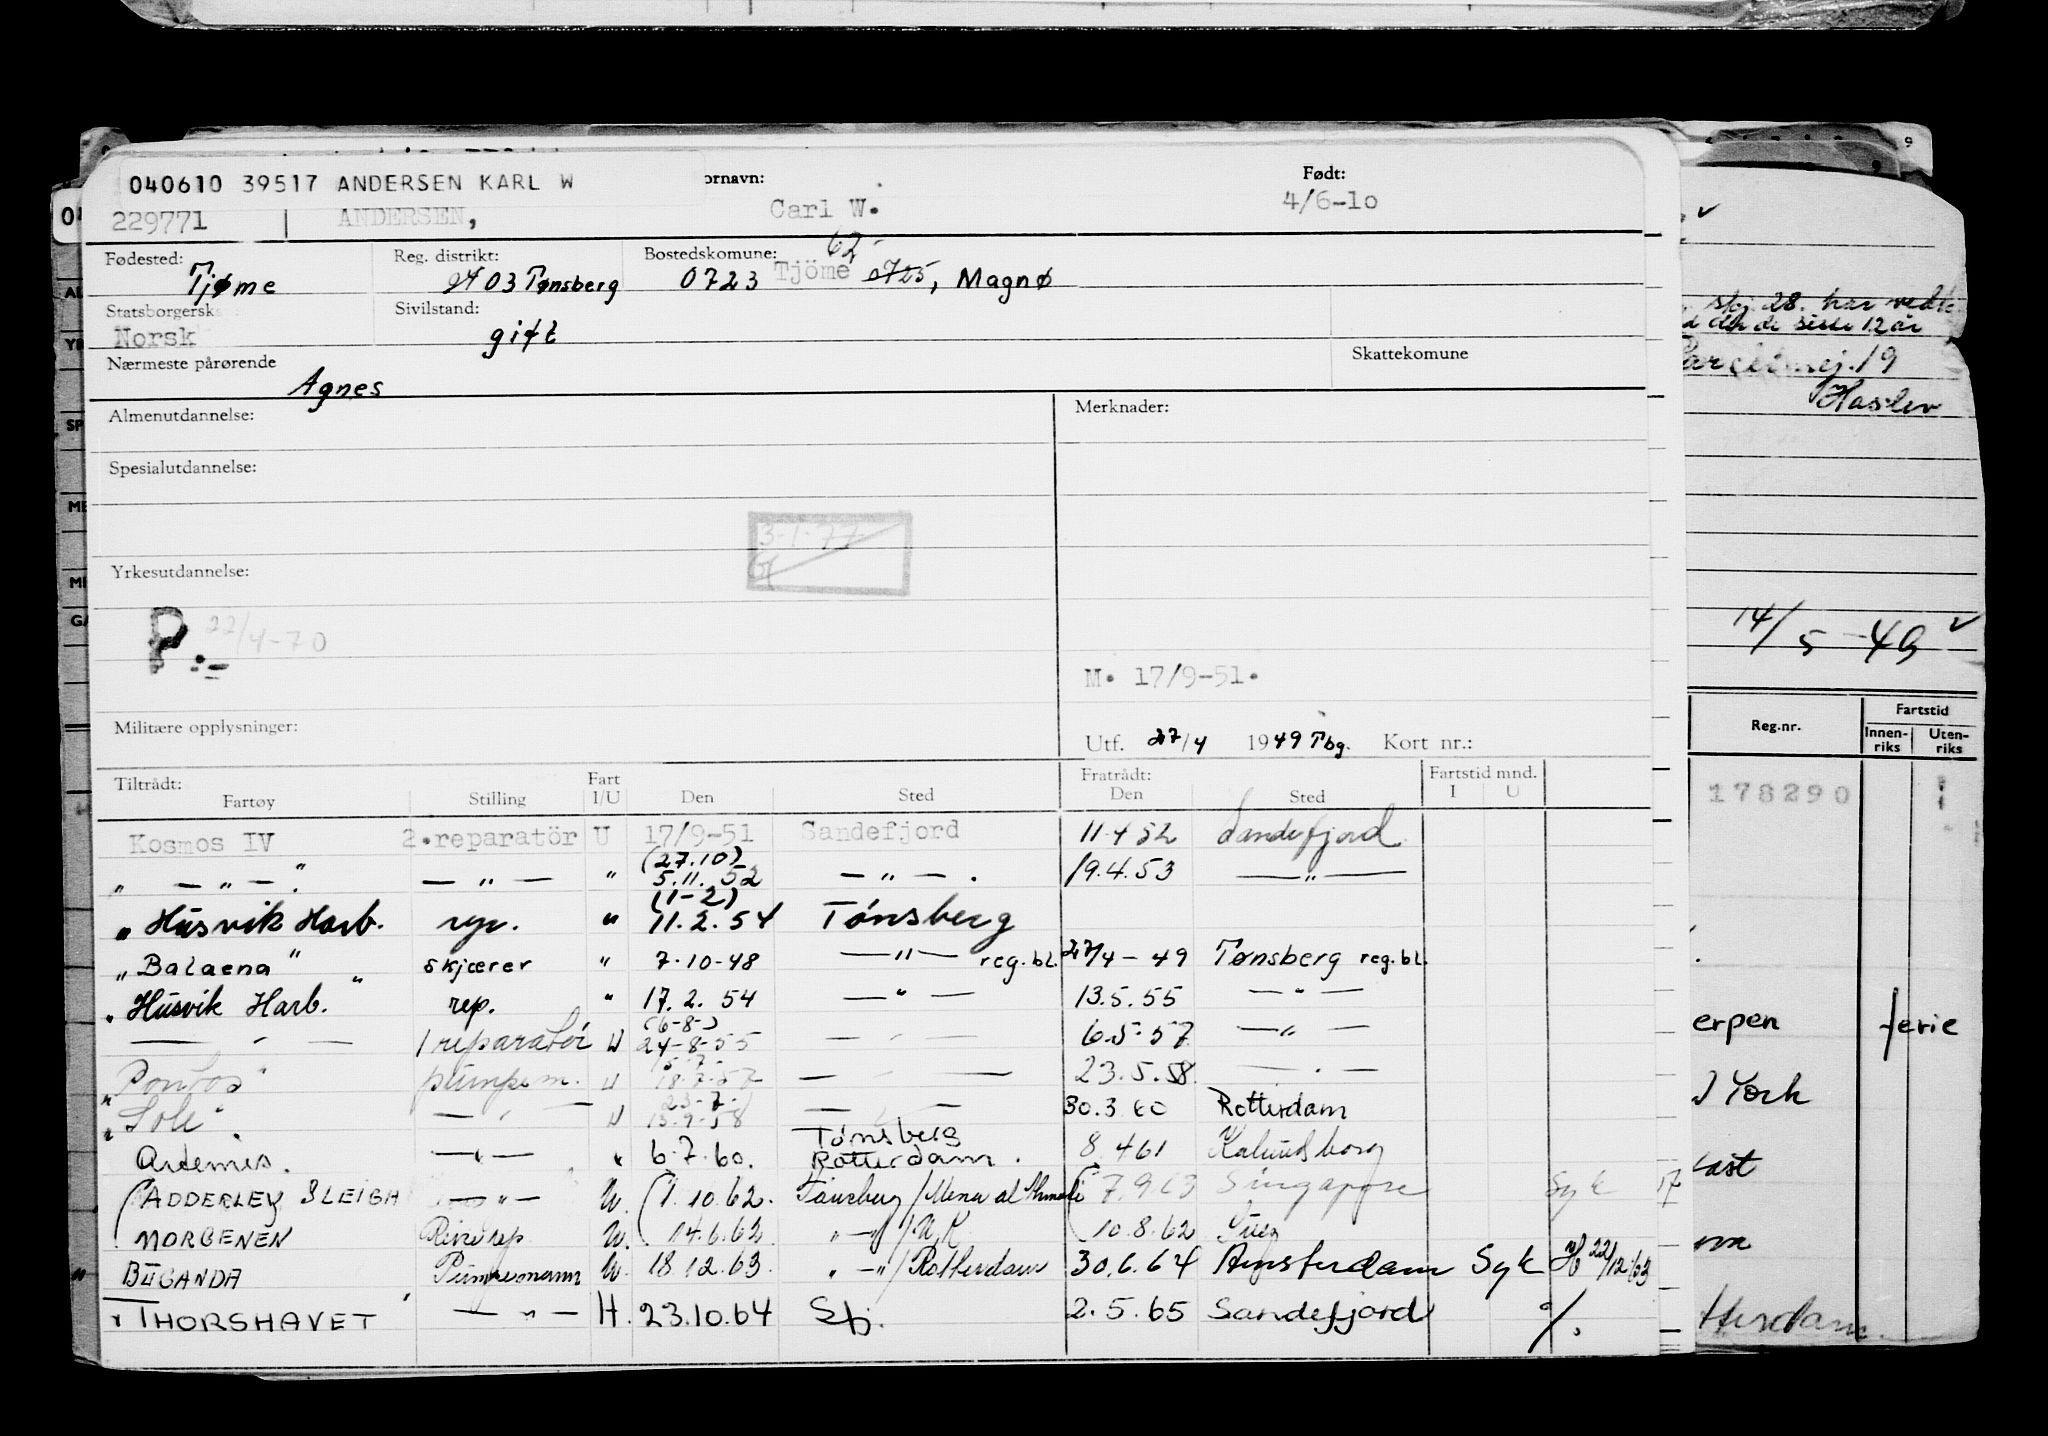 040610 39517 ANDERSEN KARL W ornavn: Født:
229771 ANDERSEN, Carl W. 4/6-10
Fødested: Reg. distrikt: Bostedskomune: 62
Tjøme 03 Tønsberg 0723 Tjöme 0725, Magnø
Statsborgersk Sivilstand:
Norsk gift
Nærmeste pårørende Skattekomune
Agnes
Almenutdannelse: Merknader:
Spesialutdannelse:
3-1-77
Yrkesutdannelse:
P 22/4-70
:-
M. 17/9-51.
Militære opplysninger:
Utf. 27/4 1949 Tbg. Kort nr.:
Tiltrådt: Fart Fratrådt: Fartstid mnd.
Fartøy Stilling I/U Den Sted Den Sted I U
Kosmos IV 2.reparatör U 17/9-51 Sandefjord 11-4 52 Sandefjord
(27.10)
" — " — " — " — " 5.11. 52 — " — . 19.4.53 — " —
(11-2)
" Husvik Harb. rep. " 11.2.54 Tønsberg
" Balaena " skjærer " 7-10-48 — " — reg.bl. 27/4-49 Tønsberg reg.bl.
" Husvik Harb. " rep. " 17.2.54 — " — 13.5.55 — " —
(6-8-)
— " — 1 reparatør U 24-8-55 — " — 6.5-57 — " —
" pumpem. U 18.7.57 — " — 23.5.58 — " —
23-7-
" Sole " — " — U 13.9.58 — " — 30.3.60 Rotterdam
Tønsberg
Artemis. — " — " 6.7.60. Rotterdam. 8.4 61 Kalundborg
(ADDERLEY BLEIBA — " — U. (1.10.62. Tønsberg/Mena al Ahmadi 7.9.63 Singapore Syk 17
MORGENEN Rep U. 14.6.62 " — " /U.K 10.8.62 Suez
" BUGANDA Pumpemann U. 18.12.63. " — " /Rotterdam 30.6.64 Amsterdam Syk H 22/12/63
" THORSHAVET — " — H. 23.10.64 Sfj. 2.5.65 Sandefjord %.
9
skj 28. har
d de siste 12 år
19
Haslev
14/5-49
Reg.nr. Fartstid
Innen-riks Uten-riks
178290
erpen ferie
York
tterdam